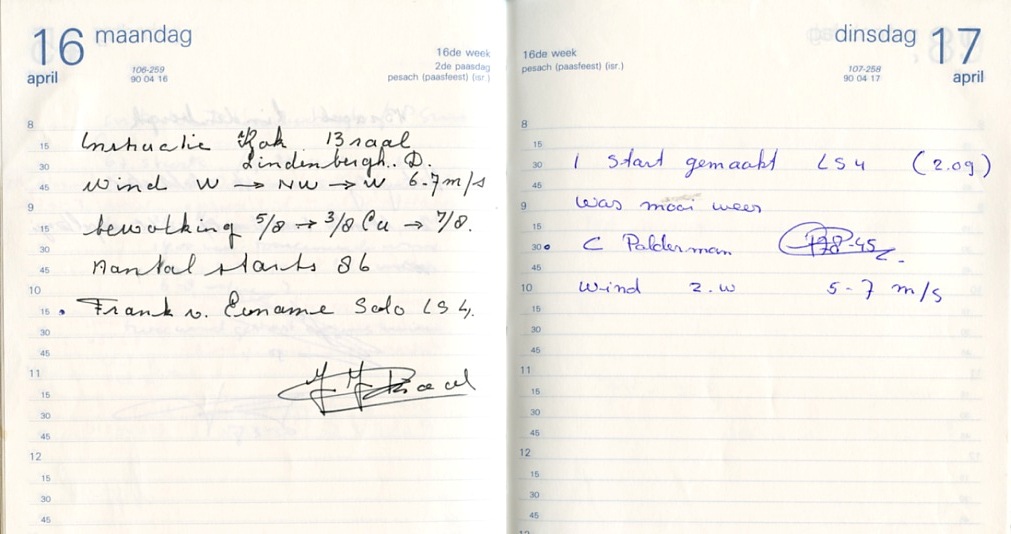 16 maandag
april
106-259
90 04 16
16de week
2de paasdag
pesach (paasfeest) (isr.)
8
15
Instructie Kok Braal
30
Lindenbergh. D.
45
Wind W → NW → W 6-7 m/s
9
15
bewolking 5/8 → 3/8 Cu → 7/8.
30
45
Aantal starts 86
10
15
Frank v. Ename Solo LS 4.
30
45
11
15
30
45
12
15
30
45
dinsdag 17
april
107-258
90 04 17
16de week
pesach (paasfeest) (isr.)
8
15
30
1 Start gemaakt LS4 (2.09)
45
9
was mooi weer
15
30
C Palderman
45
10
Wind Z.W 5-7 m/s
15
30
45
11
15
30
45
12
15
30
45